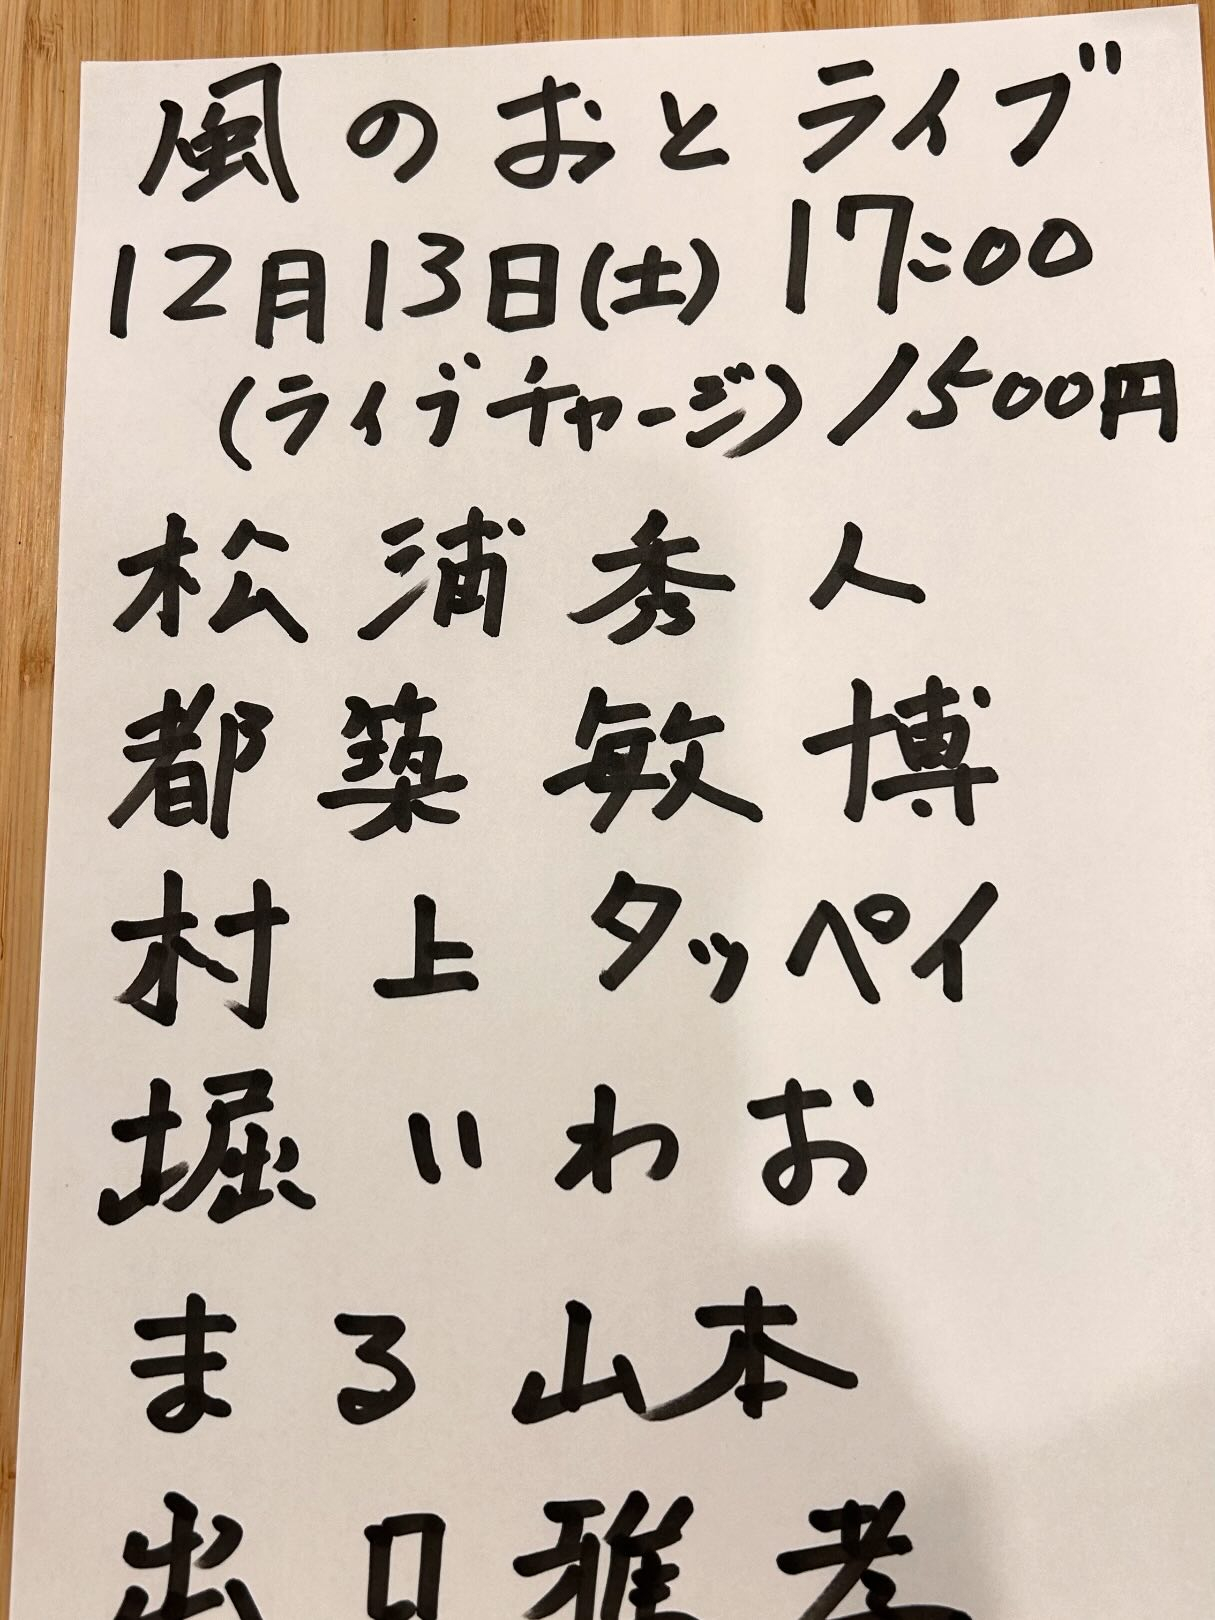 風のおとライブ
12月13日(土) 17:00
(ライブチャージ) 1500円
松浦秀人
都築敏博
村上タッペイ
堀いわお
まる山本
出口雅孝